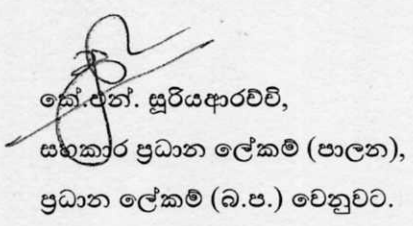 කේ.එන්. සූරියආරච්චි,
සහකාර ප්‍රධාන ලේකම් (පාලන),
ප්‍රධාන ලේකම් (බ.ප.) වෙනුවට.